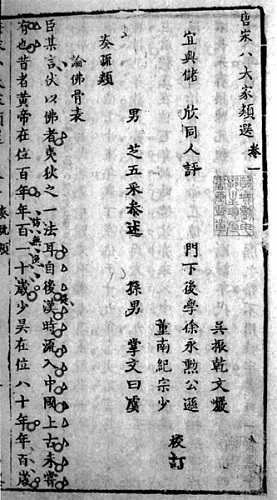 唐宋八大家類選卷一
吳振乾文巖
宜興儲欣同人評 門下後學徐永勳公遜 校訂
董南紀宗少
男芝五采叅述 孫男掌文曰虞
奏疏類
論佛骨表
臣某言伏以佛者夷狄之一法耳自後漢時流入中國上古未嘗
有也昔者黃帝在位百年年百一十歲少昊在位八十年年百歲